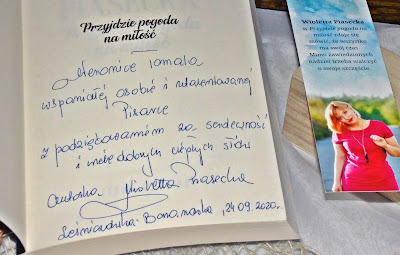 Przyjdzie pogoda
na miłość
Weronice Tomala
wspaniałej osobie i utalentowanej
Pisarce
z podziękowaniem za serdeczność
i wiele dobrych, ciepłych słów
autorka Wioletta Piasecka
24.09.2020.
Wioletta Piasecka
w Przyjdzie pogoda na
miłość zdaje się
mówić, że wszystko
ma swój czas.
Mimo zawiedzionych
nadziei trzeba walczyć
o swoje szczęście.